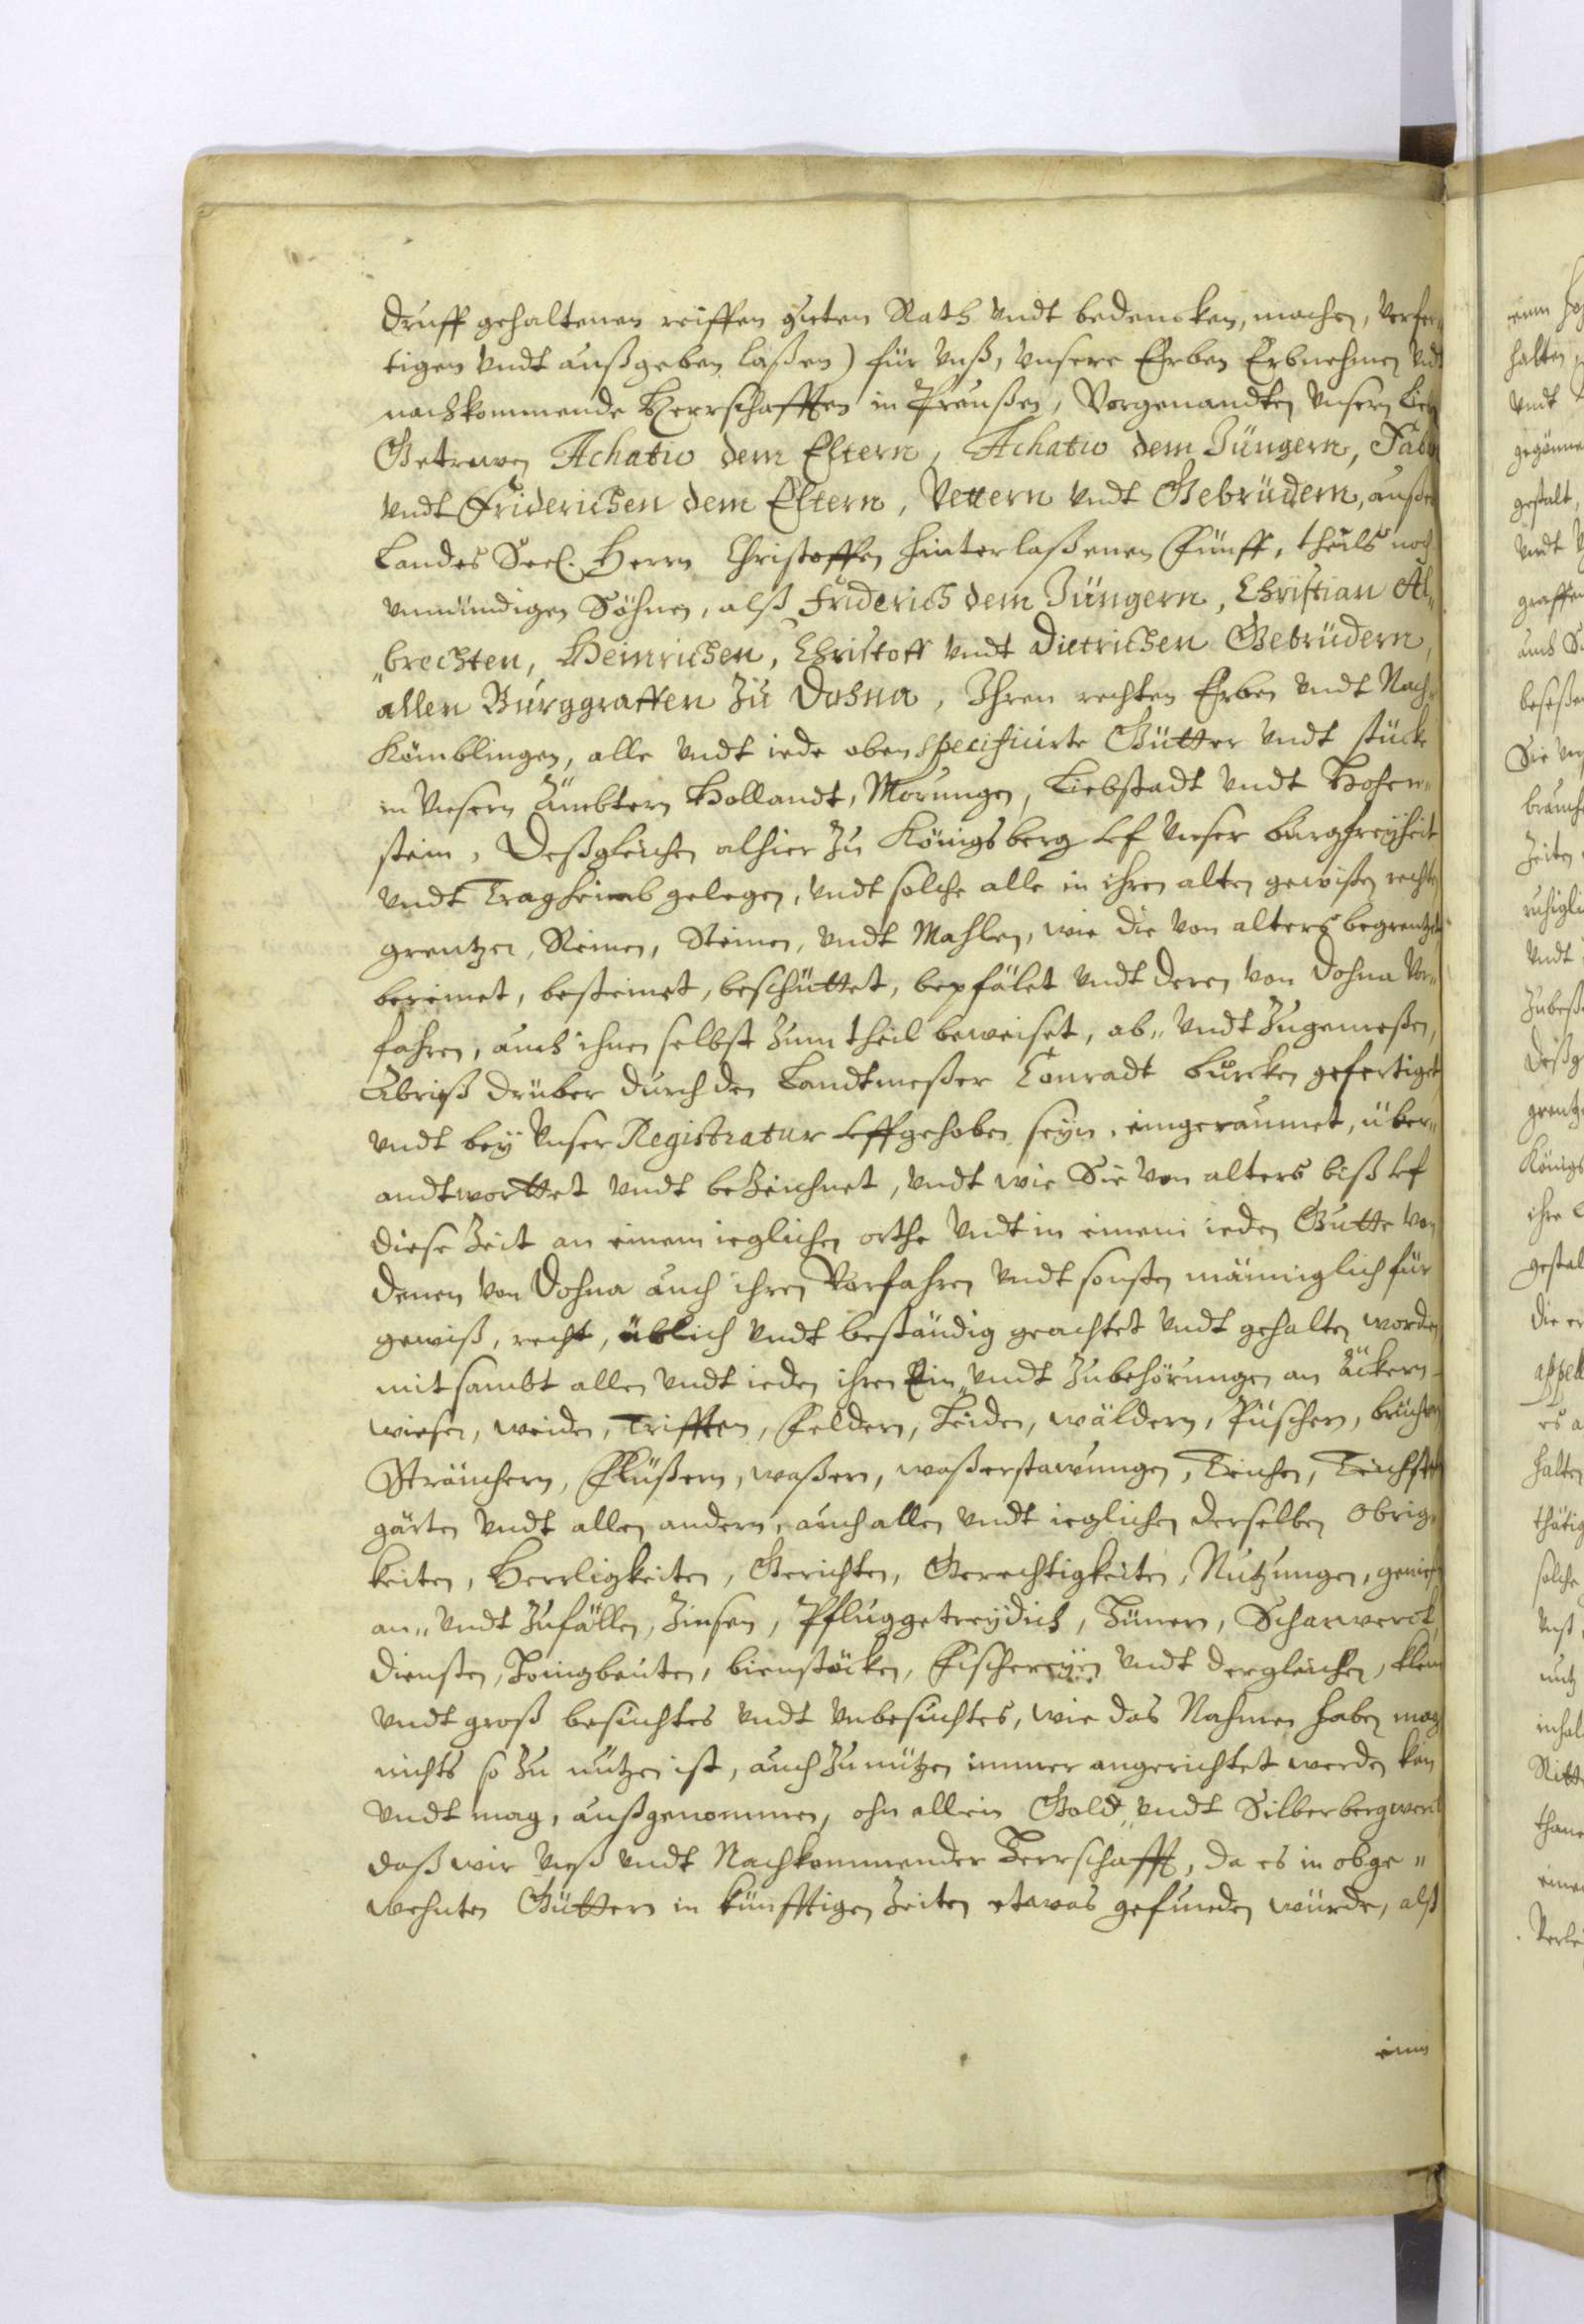 druff gehaltenen reiffen guten Rath vndt bedencken, machen, verfer„
tigen vndt außgeben laßen) für vnß, vnsere Erben Erbnehmen vndt
nachkommende Herrschafften in Preußen, Vorgenandten vnsern Lieb
Getrewen Achatio dem Eltern, Achatio dem Jüngern, Fabi
vndt Friderichen dem Eltern, Vettern vndt Gebrüdern, außer
Landes Seel. Herrn Christoffen hinterlaßenen Fünff, theils noch
vnmündigen Söhnen, alß Friderich dem Jüngern, Christian Al„
„brechten, Heinrichen, Christoff vndt Dietrichen Gebrüdern,
allen Burggraffen zu Dohna, Ihren rechten Erben vndt Nach„
Kömblingen, alle vndt iede oben specificirte Gütter vndt stücke
in vnsern Ämbtern Hollandt, Morungen, Liebstadt vndt Hohen„
stein, Deßgleichen alhier zu Königsberg vf vnser burgfreyheit
vndt Tragheimb gelegen, vndt solche alle in ihren alten gewißen rechten
grentzen, Reinen, Steinen, vndt Mahlen, wie die von alters begrentzet
bereinet, besteinet, beschüttet, bepfälet vndt deren von Dohna Vor„
fahren, auch ihnen selbst zum theil beweiset, ab„ vndt zugemeßen,
Abriß drüber durch den Landtmeßer Conradt Burcken gefertiget
vndt bey vnser Registratur vffgehoben seyn, eingeraumet, über„
andtworttet vndt bezeichnet, vndt wie Sie von alters biß vf
diese Zeit an einem ieglichen orthe vndt in einem ieden Gutte von
denen von Dohna auch ihren Vorfahren vndt sonsten männiglich für
gewiß, recht, üblich vndt beständig geachtet vndt gehalten worden
mit sambt allen vndt ieden ihren Ein„ vndt Zubehörungen an äckern
wiesen, weiden, Trifften, Feldern, Heiden, wäldern, Püschen, brüchen
Sträuchern, Flüßern, waßern, waßerstawungen, Teichen, Teichstet
gärten vndt allen andern, auch allen vndt ieglichen derselben Obrig„
keiten, Herrligkeiten, Gerichten, Gerechtigkeiten, Nutzungen, genieß
an„ vndt Zufällen, Zinsen, Pfluggetreydich, Hünern, Scharwerck,
diensten, Honigbeuten, bienstöcken, Fischereyen vndt dergleichen, klein
vndt groß besuchtes vndt vnbesuchtes, wie das Nahmen haben mag
nichts so zu nutzen ist, auch zu nützen immer angerichtet werden kan
vndt mag, außgenommen, ohn allein Gold„ vndt Silberbergwerck
daß wir vnß vndt Nachkommender Herrschafft, da es in obge„
wehnten Güttern in künfftigen Zeiten etwas gefunden würde, alß
einen